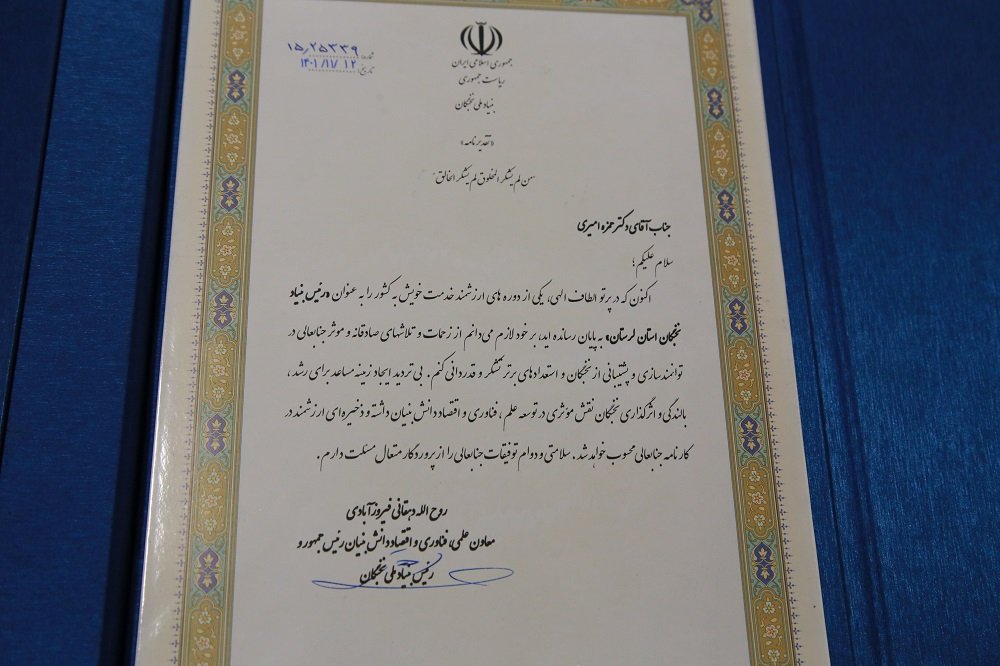 جمهوری اسلامی ایران
ریاست جمهوری
بنیاد ملی نخبگان
شماره: ۱۵/۲۵۳۳۹
تاریخ: ۱۴۰۱/۱۱/۱۲
«تقدیرنامه»
"من لم یشکر المخلوق لم یشکر الخالق"
جناب آقای دکتر حمزه امیری
سلام علیکم؛
اکنون که در پرتو الطاف الهی، یکی از دوره های ارزشمند خدمت خویش به کشور را به عنوان «رئیس بنیاد
نخبگان استان لرستان» به پایان رسانده اید، بر خود لازم می‌دانم از زحمات و تلاشهای صادقانه و موثر جنابعالی در
توانمندسازی و پشتیبانی از نخبگان و استعدادهای برتر تشکر و قدردانی کنم. بی تردید ایجاد زمینه مساعد برای رشد،
بالندگی و اثرگذاری نخبگان نقش مؤثری در توسعه علم، فناوری و اقتصاد دانش بنیان داشته و ذخیره‌ای ارزشمند در
کارنامه جنابعالی محسوب خواهد شد. سلامتی و دوام توفیقات جنابعالی را از پروردگار متعال مسئلت دارم.
روح الله دهقانی فیروزآبادی
معاون علمی، فناوری و اقتصاد دانش بنیان رئیس جمهور و
رئیس بنیاد ملی نخبگان